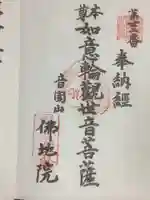 第十二番
奉納經
本尊
如意輪觀世音菩薩
音固山
佛地院